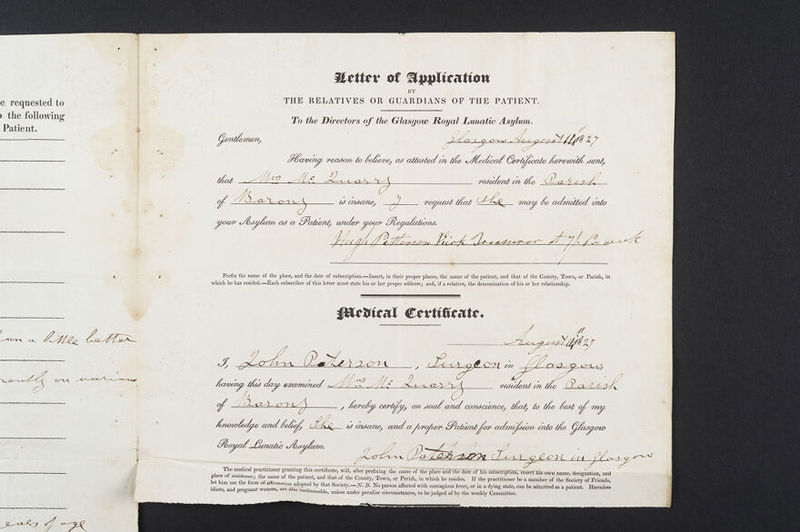 e requested to
o the following
Patient.
on a little better
on various
years of age
Letter of Application
BY
THE RELATIVES OR GUARDIANS OF THE PATIENT.
To the Directors of the Glasgow Royal Lunatic Asylum.
Gentlemen, Glasgow August 14th 1827
Having reason to believe, as attested in the Medical Certificate herewith sent,
that Mrs Mc Quarry resident in the Parish
of Barony is insane, I request that She may be admitted into
your Asylum as a Patient, under your Regulations.
Hugh Paterson Kirk Treasurer at 7/ P week
Prefix the name of the place, and the date of subscription.—Insert, in their proper places, the name of the patient, and that of the County, Town, or Parish, in
which he has resided.—Each subscriber of this letter must state his or her proper address; and, if a relative, the denomination of his or her relationship.
Medical Certificate.
August 14th 1827
I, John Paterson, Surgeon in Glasgow,
having this day examined Mrs Mc Quarry resident in the Parish
of Barony, hereby certify, on soul and conscience, that, to the best of my
knowledge and belief, She is insane, and a proper Patient for admission into the Glasgow
Royal Lunatic Asylum.
John Paterson Surgeon in Glasgow
The medical practitioner granting this certificate, will, after prefixing the name of the place and the date of his subscription, insert his own name, designation, and
place of residence; the name of the patient, and that of the County, Town, or Parish, in which he resides. If the practitioner be a member of the Society of Friends,
let him use the form of affirmation adopted by that Society.—N. B. No person affected with contagious fever, or in a dying state, can be admitted as a patient. Harmless
idiots, and pregnant women, are also inadmissible, unless under peculiar circumstances, to be judged of by the weekly Committee.